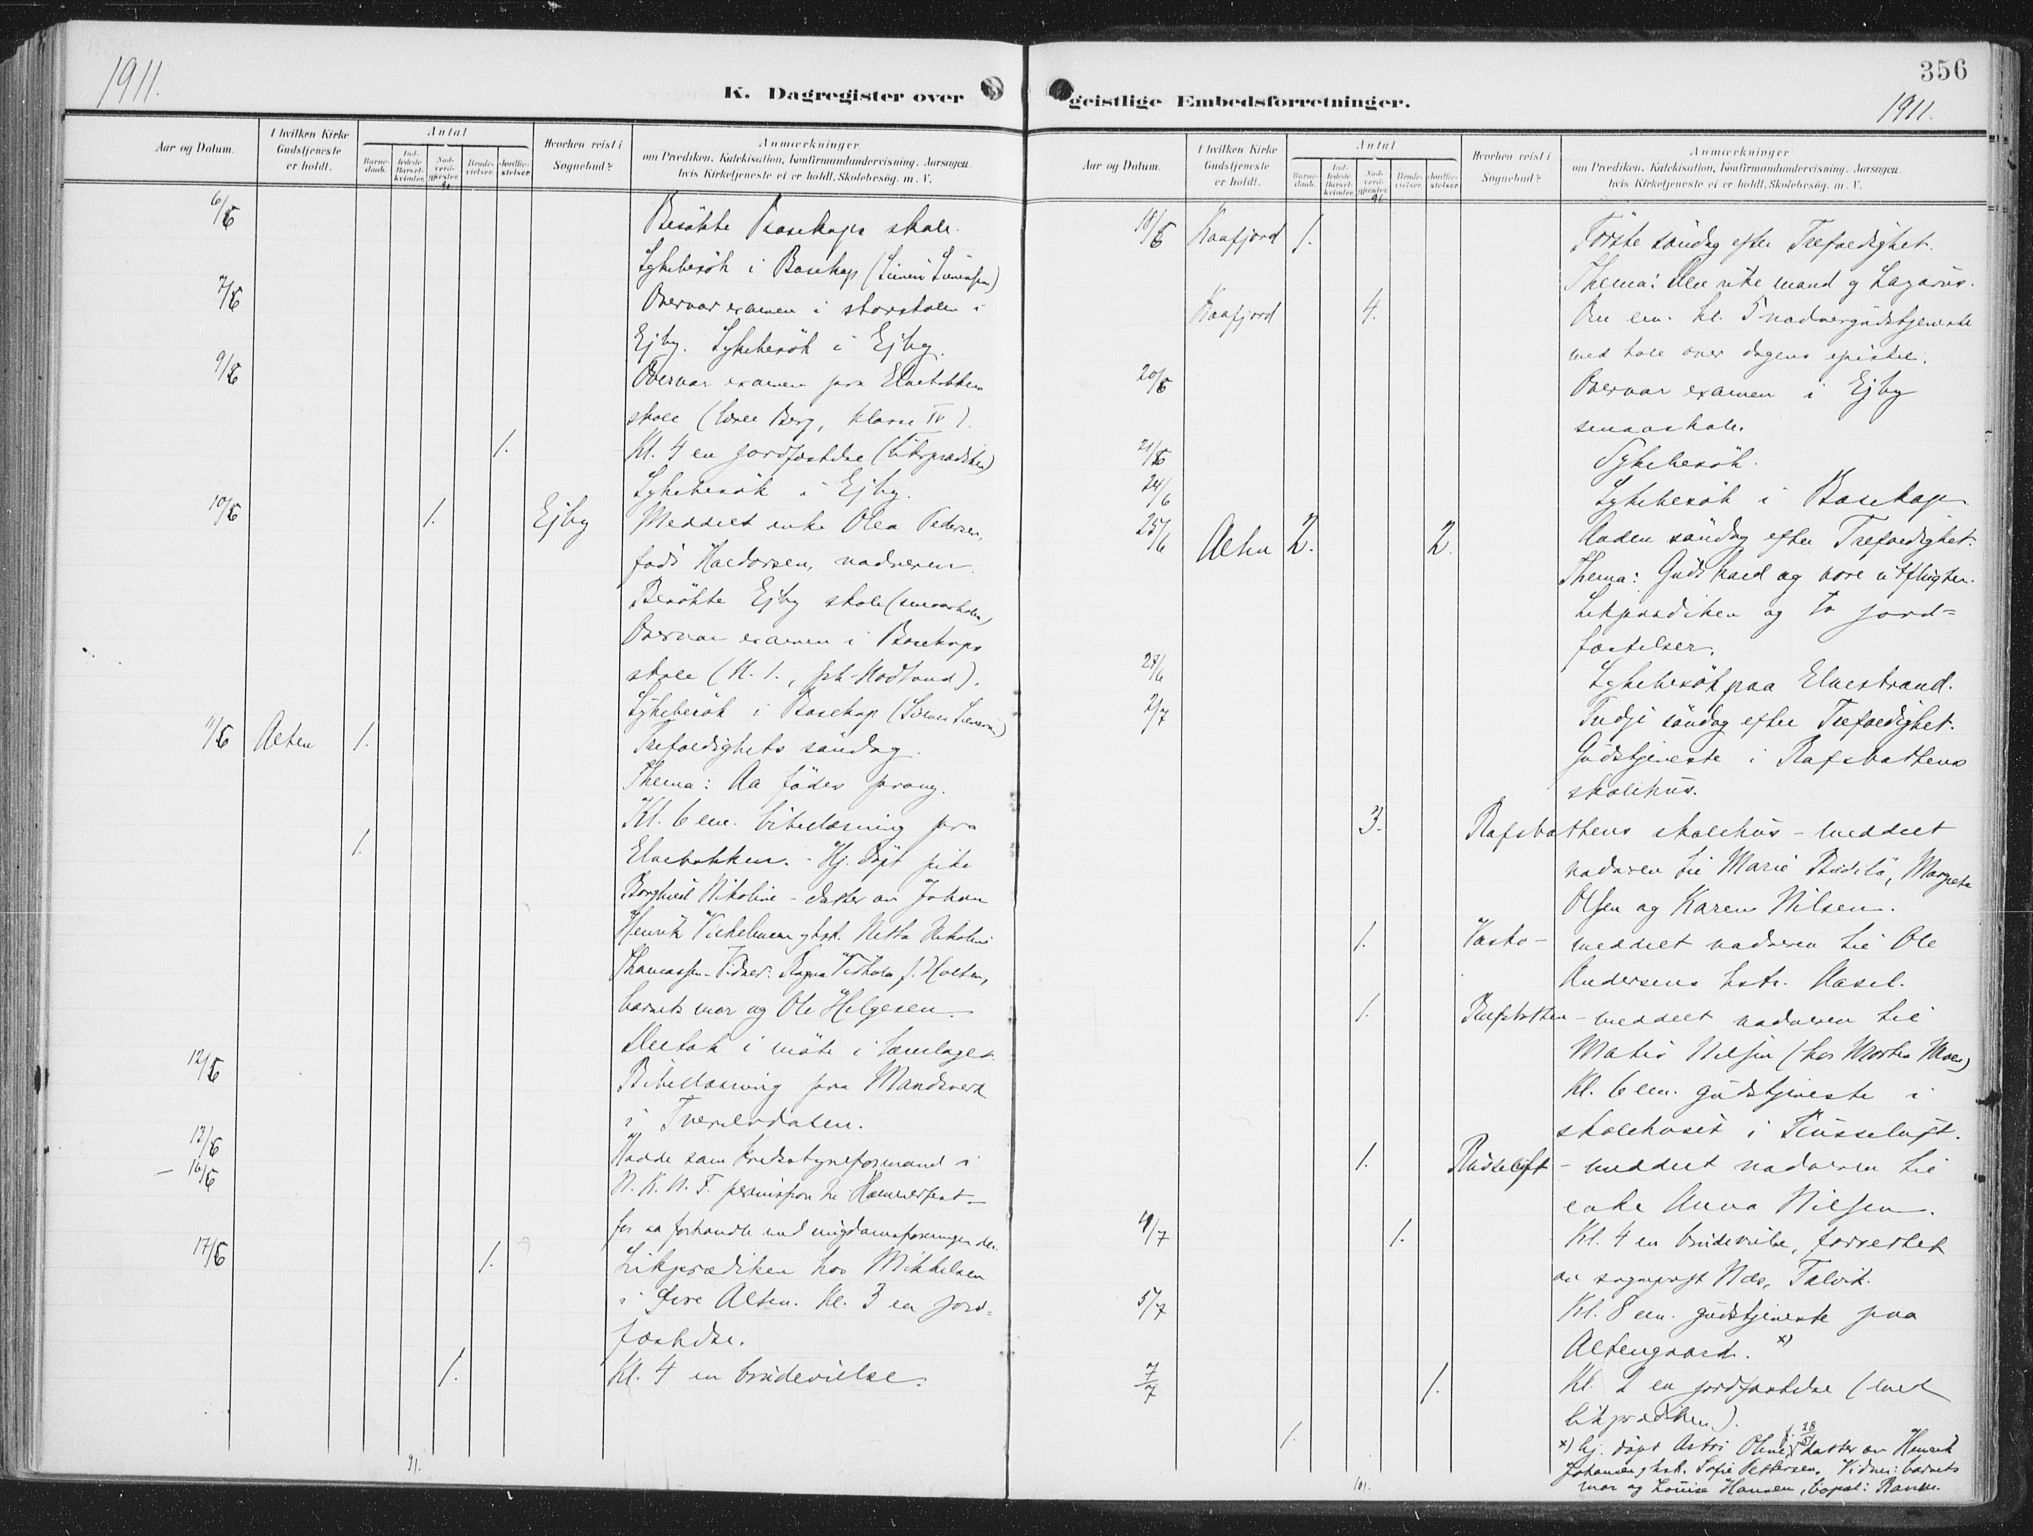 1911.
K. Dagregister over
Aar og Datum.
I hvilken Kirke Gudstjeneste er holdt.
Antal
Barne-daab.
Ind-ledede Barsel-kvinder.
Nad-verd-gjester.
Brude-vielser.
Jordfæ-stelser.
Hvorhen reist i Sognebud?
Anmærkninger
om Prædiken, Katekisation, Konfirmandundervisning. Aarsagen
hvis Kirketjeneste ei er holdt. Skolebesøg. m. V.
91
6/6 Besökte Bosekops skole.
Sykebesök i Bosekop
7/6 Overvar examen i storskolen i
Ejby. Sykebesök i Ejby.
9/6 Overvar examen paa Elvebakken
skole (lærer Berg, klasse IV).
1. Kl. 4 em jordfæstelse (likprædiken)
Sykebesök i Ejby.
10/6 1. Ejby Meddelt enke Olea Pedersen,
født Haldorsen, nadveren.
Besökte Ejby skole (smaaskolen)
Overvar examen i Bosekops
skole (kl. 1., frk. Hodland).
Sykebesök i Bosekop
11/6 Alten 1. Trefoldighets söndag.
Thema: Aa födes paany.
Kl. 6 em. bibellæsning paa
1. Elvebakken. - Hj. döpt pike
Borghild Nikoline - datter av Johan
Henrik Vilhelmsen og hst. Netta Nikoline
Thomassen - Vidner: Ragna f. Holten,
barnets mor og Ole Helgesen.
Deltok i möte i lærerlaget.
12/6 Bibellæsning paa Mandsverk
i Tverelvdalen.
13/6 Hadde som kredsstyreformand i
- 16/6 N. K. U. F. permission til Hammerfest
for aa forhandle med ungdomsforeningen der.
17/6 1. Likprædiken hos Mikkelsen
i Övre Alten. Kl. 3 em jord-
fæstelse.
1. Kl. 4 em brudevielse.
91.
356
1911.
geistlige Embedsforretninger.
Aar og Datum.
I hvilken Kirke Gudstjeneste er holdt.
Antal
Barne-daab.
Ind-ledede Barsel-kvinder.
Nad-verd-gjester.
Brude-vielser.
Jordfæ-stelser.
Hvorhen reist i Sognebud?
Anmærkninger
om Prædiken, Katekisation, Konfirmandundervisning. Aarsagen
hvis Kirketjeneste ei er holdt. Skolebesøg. m. V.
91
18/6 Kaafjord 1. Förste söndag efter Trefoldighet.
Thema: Den rike mand og Lazarus.
Kaafjord 4. Om em. kl. 5 nadvergudstjeneste
med tale over dagens epistel.
20/6 Overvar examen i Ejby
smaaskole.
21/6 Sykebesök.
24/6 Sykebesök i Bosekop
25/6 Alten 2. 2. Anden söndag efter Trefoldighet.
Thema: Guds kald og vore utflugter.
Likprædiken og to jord-
fæstelser.
27/6 Sykebesök paa Elvestrand.
2/7 Tredje söndag efter Trefoldighet.
Gudstjeneste i Rafsbottens
skolehus.
3. Rafsbottens skolehus - meddelt
nadveren til Marie Margrete
Olsen og Karen Nilsen.
1. - meddelt nadveren til Ole
Andersens hstr. Aasel.
1. Rafsbotten - meddelt nadveren til
Nilsen (hos Morten Moen)
Kl. 6 em. gudstjeneste i
skolehuset i Russeluft.
1. Russeluft - meddelt nadveren til
enke Anna Nilsen.
4/7 1. Kl. 4 em brudevielse, forrettet
av sognepræst Næs, Talvik.
5/7 Kl. 8 em. gudstjeneste paa
Altengaard. x)
7/7 1. Kl. 2 em jordfæstelse (med
likprædiken).
1. x) hj. döpt Astri f. 28/5 datter av Henrik
Johansen og hst. Sofie Pettersen. Vidner: barnets
mor og Louise Hansen, bopæl:
101.